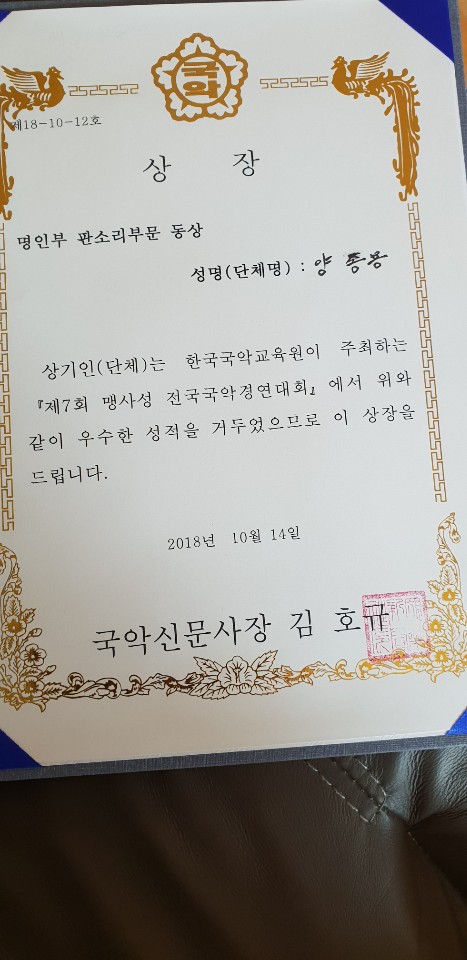 국악
제18-10-12호
상 장
명인부 판소리부문 동상
성명(단체명) : 양 종용
상기인(단체)는 한국국악교육원이 주최하는
『제7회 맹사성 전국국악경연대회』에서 위와
같이 우수한 성적을 거두었으므로 이 상장을
드립니다.
2018년 10월 14일
국악신문사장 김 호규